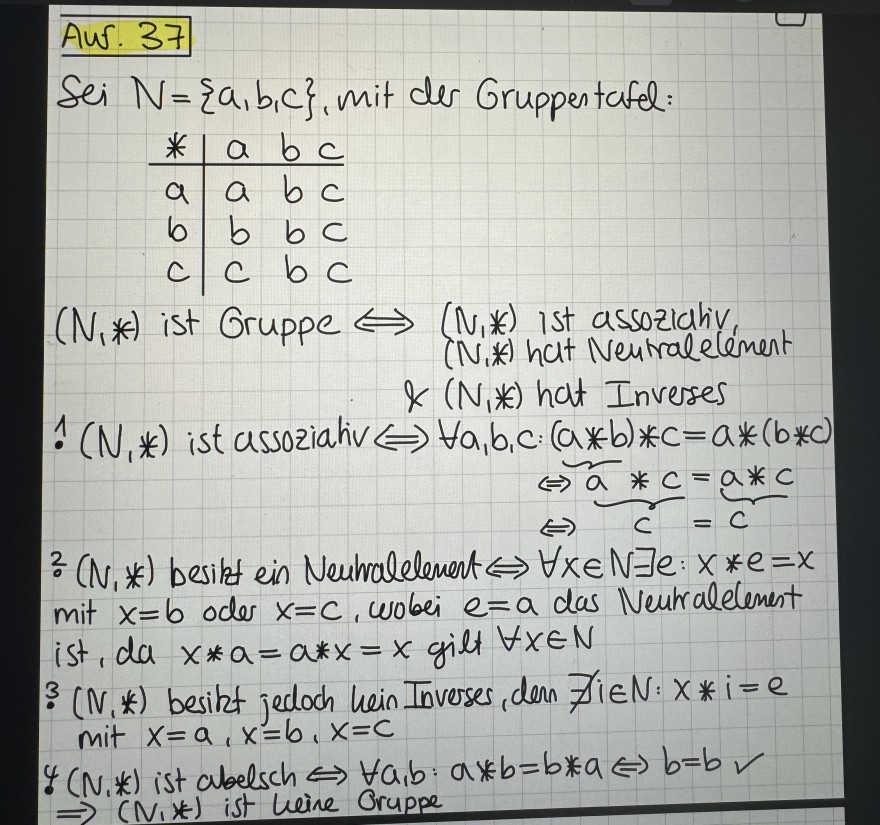 Auf. 37
Sei N = {a,b,c}, mit der Gruppentafel:
* | a b c
a | a b c
b | b b c
c | c b c
(N,*) ist Gruppe ⟺ (N,*) ist assoziativ,
(N,*) hat Neutralelement
& (N,*) hat Inverses
1. (N,*) ist assoziativ ⟺ ∀a,b,c: (a*b)*c = a*(b*c)
⟺ a * c = a * c
⟺ c = c
2. (N,*) besitzt ein Neutralelement ⟺ ∀x∈N∃e: x*e=x
mit x=b oder x=c, wobei e=a das Neutralelement
ist, da x*a=a*x=x gilt ∀x∈N
3. (N,*) besitzt jedoch kein Inverses, denn ∄i∈N: x*i=e
mit x=a, x=b, x=c
4. (N,*) ist abelsch ⟺ ∀a,b: a*b=b*a ⟺ b=b ✓
⟹ (N,*) ist keine Gruppe